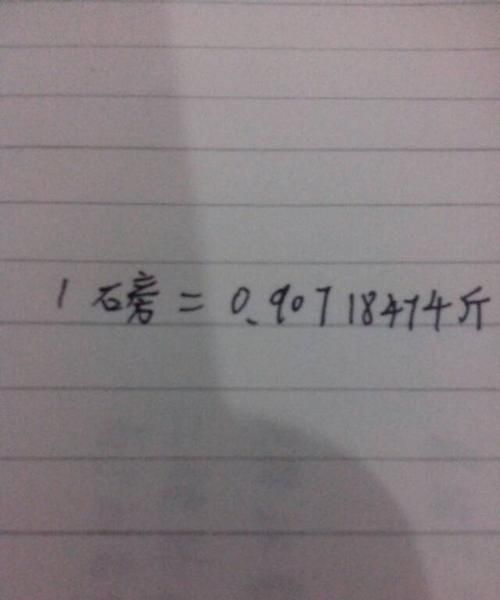 1 磅 = 0.90718474斤